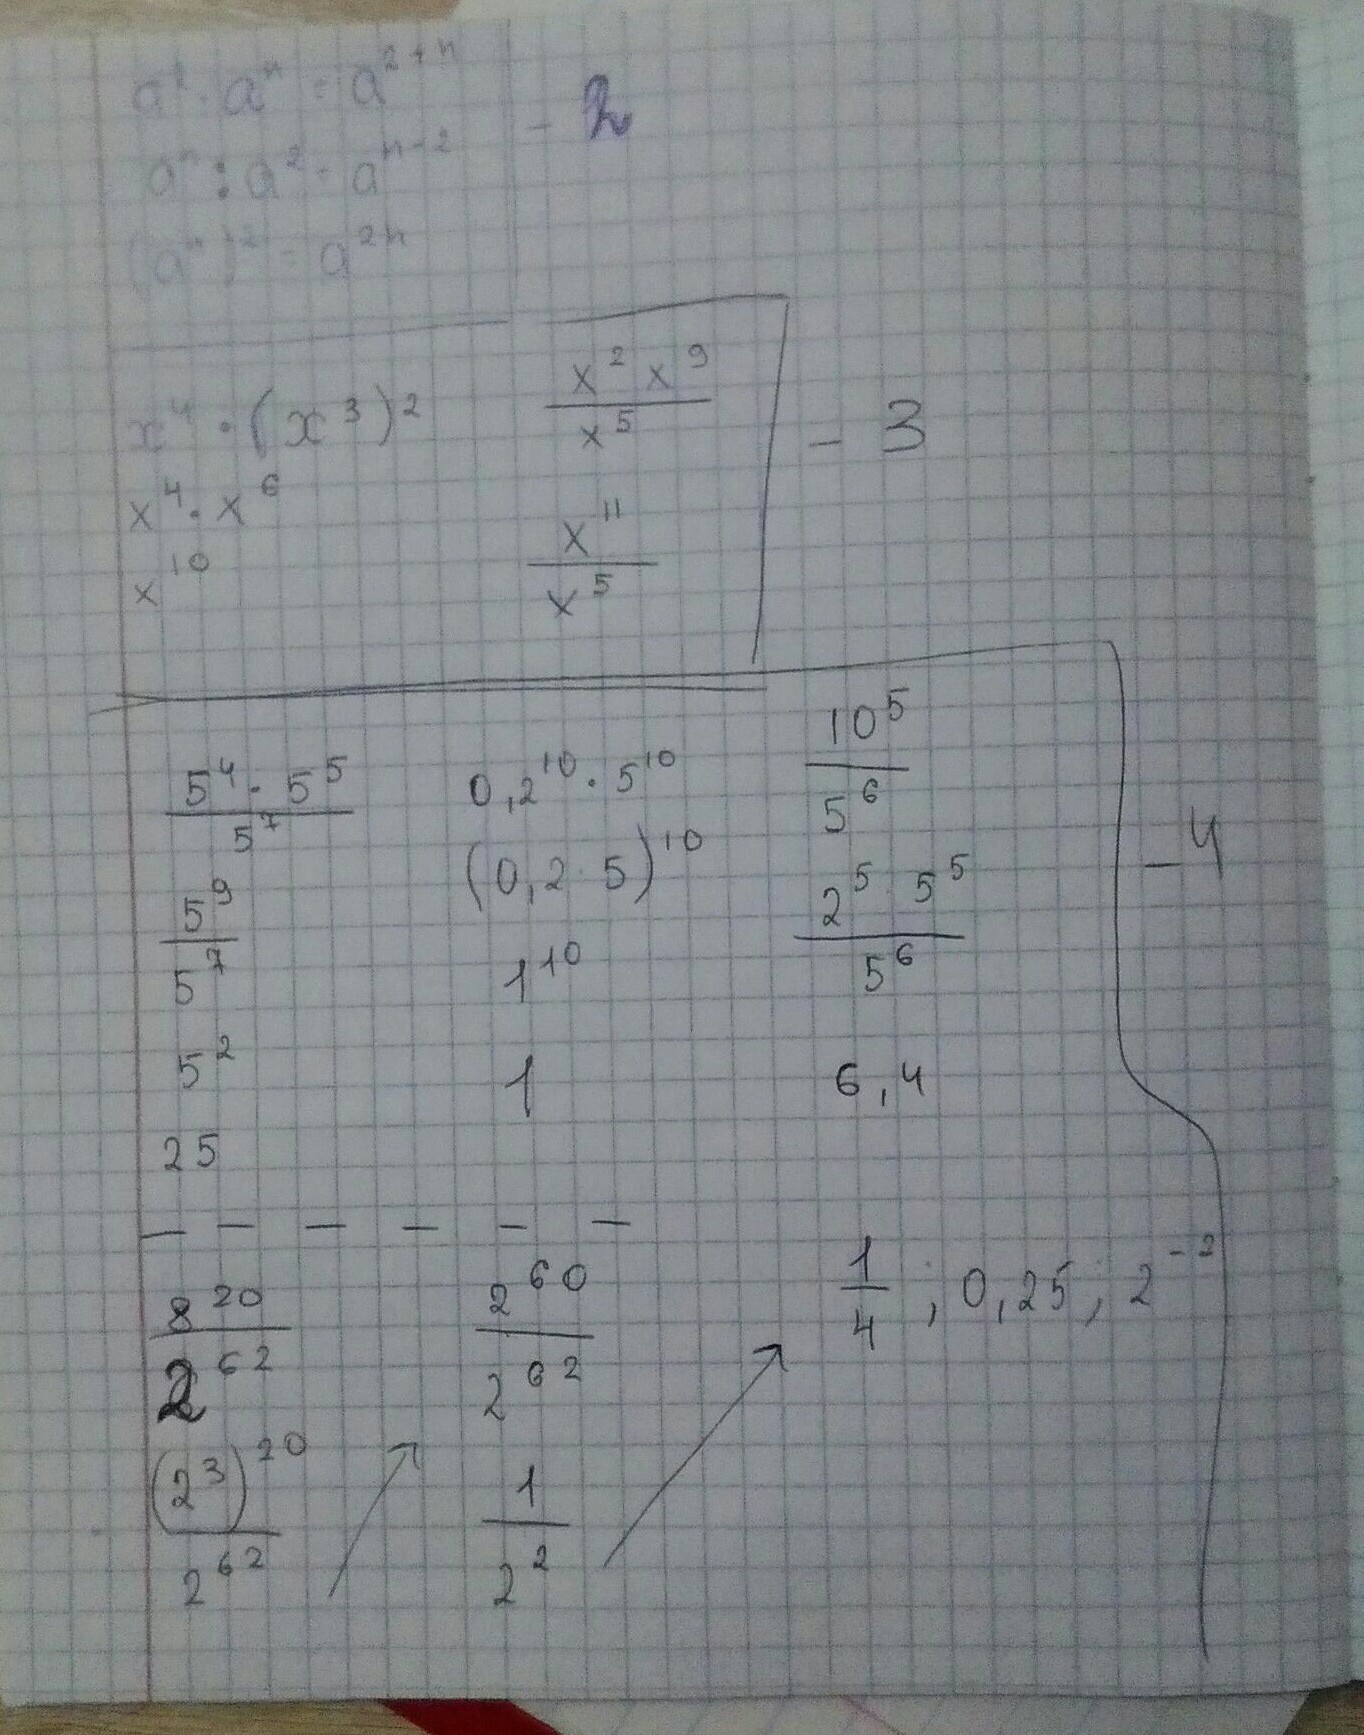 a² · aⁿ = a²⁺ⁿ
aⁿ : a² = aⁿ⁻² - 2
(aⁿ)² = a²ⁿ
x⁴ · (x³)²
x⁴ · x⁶
x¹⁰
x² x⁹ / x⁵
x¹¹ / x⁵
- 3
5⁴ · 5⁵ / 5⁷
5⁹ / 5⁷
5²
25
0,2¹⁰ · 5¹⁰
(0,2 · 5)¹⁰
1¹⁰
1
10⁵ / 5⁶
2⁵ 5⁵ / 5⁶
6,4
- 4
8²⁰ / 2⁶²
(2³)²⁰ / 2⁶²
2⁶⁰ / 2⁶²
1 / 2²
1/4 ; 0,25 ; 2⁻²